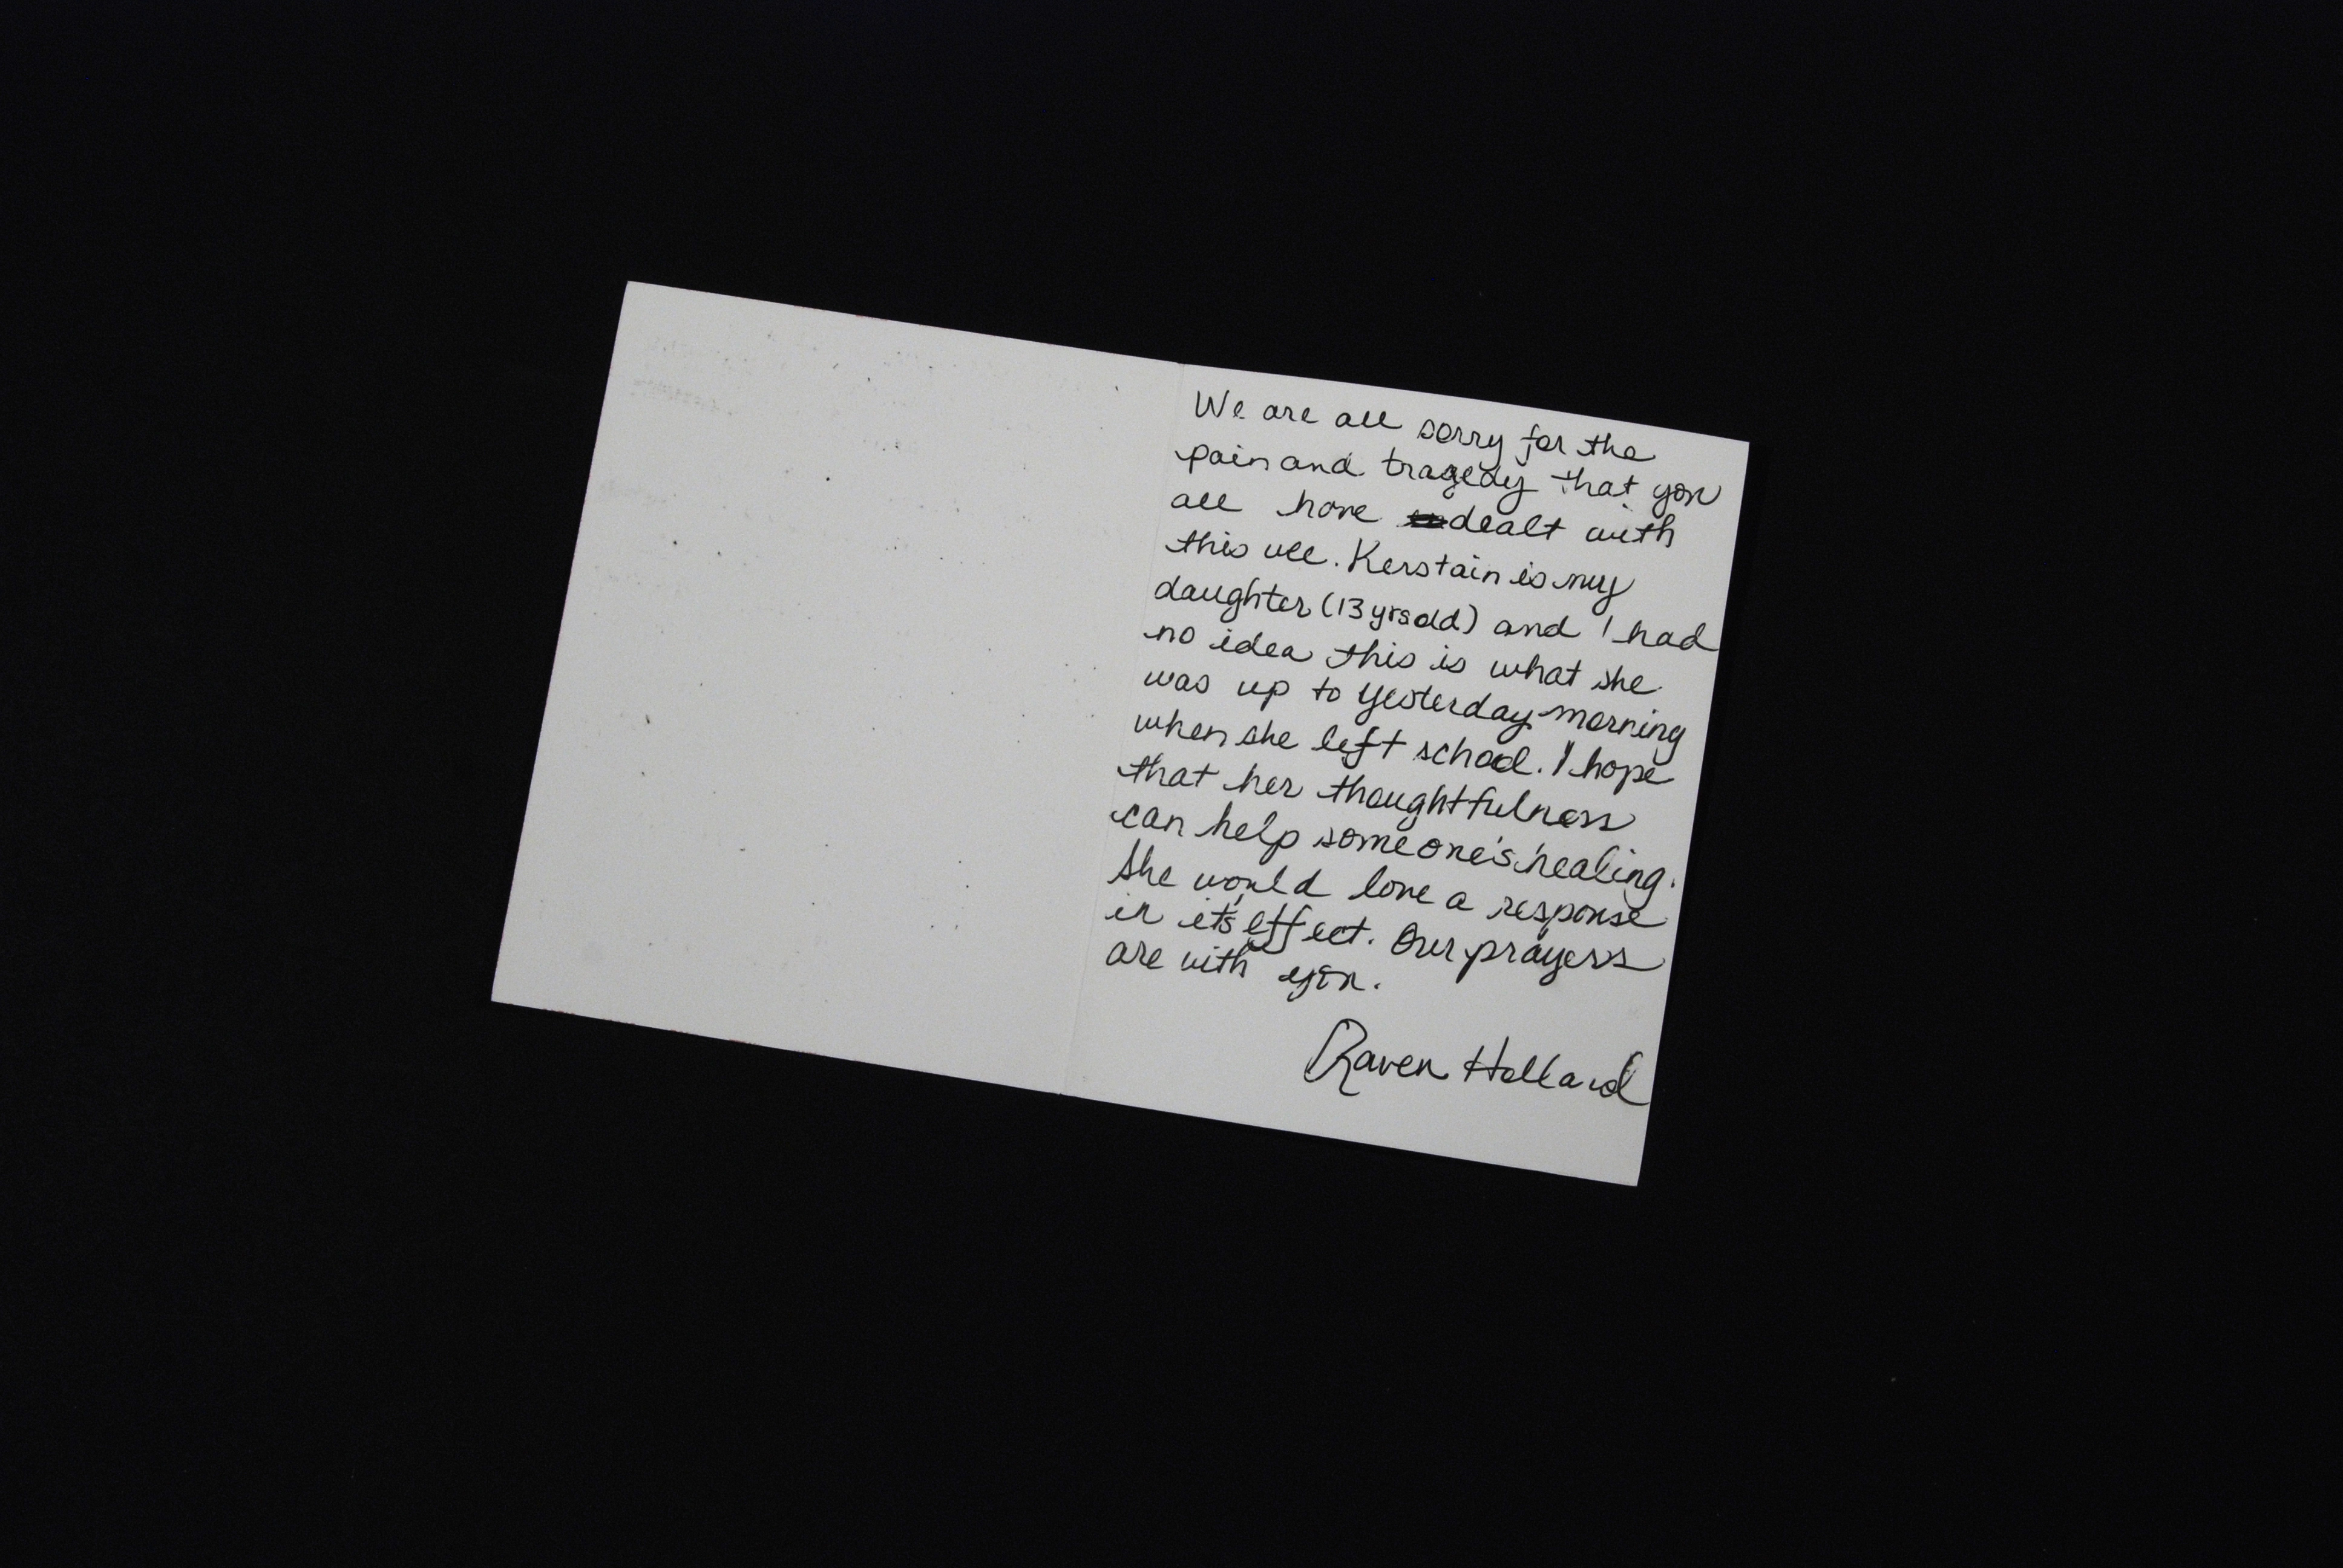 We are all sorry for the
pain and tragedy that you
all have dealt with
this . Kerstain is my
daughter (13 yrs old) and I had
no idea this is what she
was up to yesterday morning
when she left school. I hope
that her thoughtfulness
can help someone's healing.
She would love a response
in it's effect. Our prayers
are with you.
Raven Holland